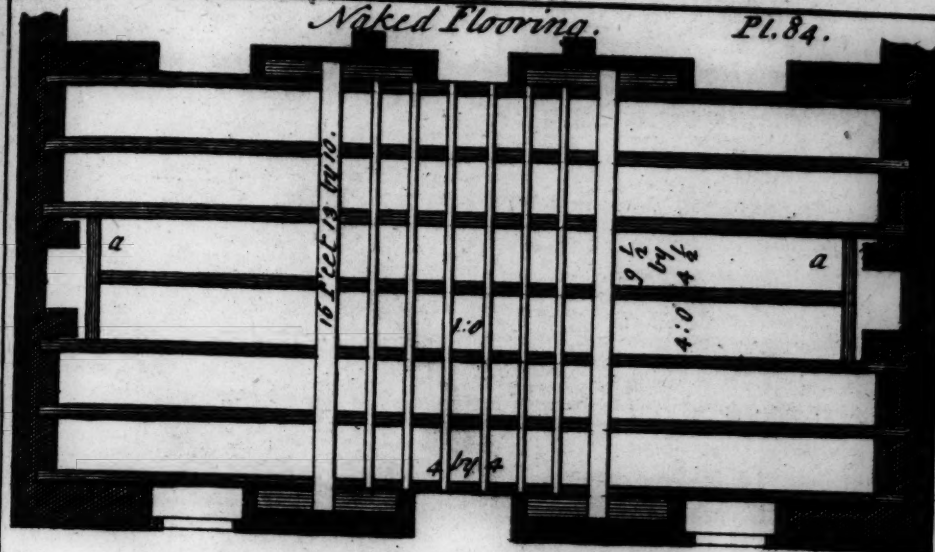 Naked Flooring.
Pl. 84.
16 Feet 13 by 10.
a
9 1/2
by
4 1/2
a
1:0
4:0
4 by 4